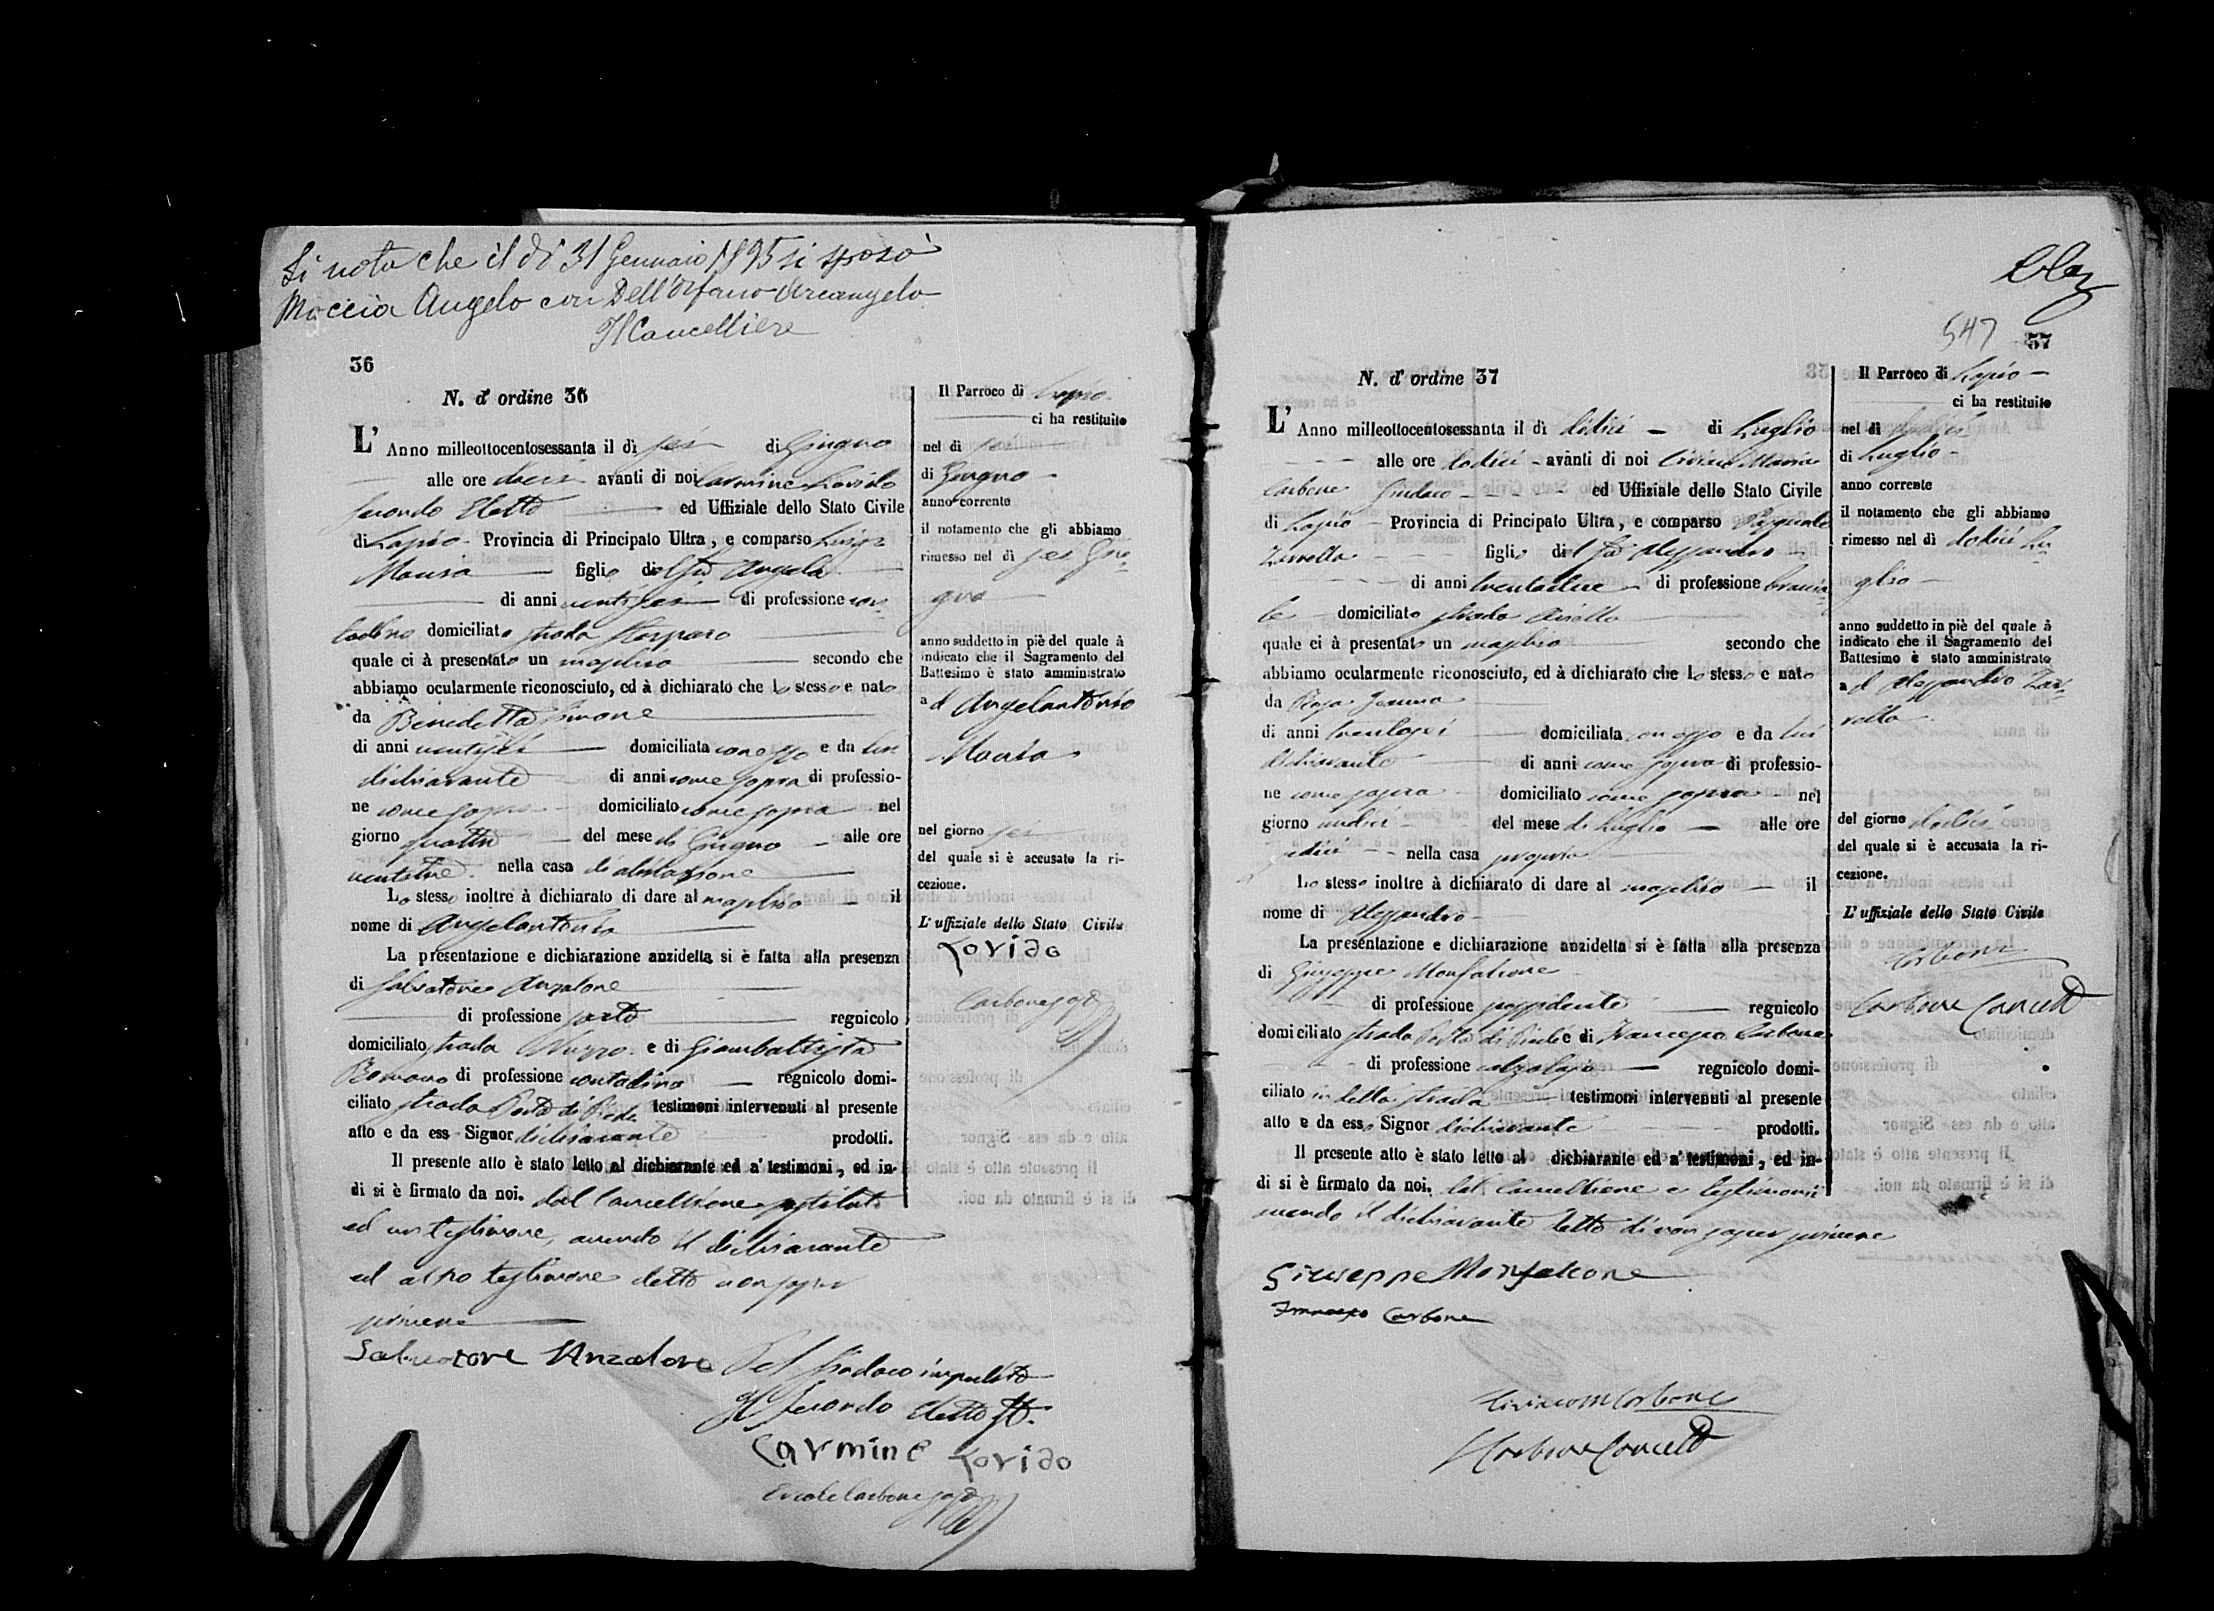 Si nota che il dì 31 Gennaio 1895 si sposò
Moccia Angelo con Dell'Orfano Arcangela
Il Cancelliere
36
N. d'ordine 36
L'Anno milleottocentosessanta il dì sei di Giugno
alle ore dieci avanti di noi Carmine Lorido
Secondo Eletto ed Uffiziale dello Stato Civile
di Lapio Provincia di Principato Ultra, e comparso Luigi
figlio del fu Angelo
di anni ventisei di professione con-
tadino domiciliato strada
quale ci à presentato un maschio secondo che
abbiamo ocularmente riconosciuto, ed à dichiarato che lo stesso e nato
da Benedetta Simone
di anni ventisei domiciliata con esso e da lui
dichiarante di anni come sopra di professio-
ne come sopra domiciliato come sopra nel
giorno quattro del mese di Giugno alle ore
ventitre nella casa di abitazione
Lo stesso inoltre à dichiarato di dare al maschio il
nome di Angelantonio
La presentazione e dichiarazione anzidetta si è fatta alla presenza
di Salvatore Anzalone
di professione sarto regnicolo
domiciliato strada Nuzzo e di Giambattista
Romano di professione contadino regnicolo domi-
ciliato strada Porta di Piedi testimoni intervenuti al presente
atto e da ess Signor dichiarante prodotti.
Il presente atto è stato letto al dichiarante ed a' testimoni, ed in-
di si è firmato da noi, dal Cancelliere sostituto
ed un testimone, avendo il dichiarante
ed altro testimone detto non saper
scrivere
Salvatore Anzalone
Pel Sindaco impedito
Il Secondo Eletto
Carmine Lorido
Ercole Carbone sost
Il Parroco di Lapio
ci ha restituito
nel dì sei
di Giugno
anno corrente
il notamento che gli abbiamo
rimesso nel dì sei Giu-
gno
anno suddetto in piè del quale à
indicato che il Sagramento del
Battesimo è stato amministrato
ad Angelantonio
nel giorno sei
del quale si è accusato la ri-
cezione.
L'uffiziale dello Stato Civile
Lorido
Carbone sost
547
37
N. d'ordine 37
L'Anno milleottocentosessanta il dì dodici di Luglio
alle ore dodici avanti di noi Ciriaco Maria
Carbone Sindaco ed Uffiziale dello Stato Civile
di Lapio Provincia di Principato Ultra, e comparso Pasquale
Zarrella figlio del fu Alessandro
di anni trentadue di professione braccia-
le domiciliato strada
quale ci à presentato un maschio secondo che
abbiamo ocularmente riconosciuto, ed à dichiarato che lo stesso e nato
da Rosa
di anni trentasei domiciliata con esso e da lui
dichiarante di anni come sopra di professio-
ne come sopra domiciliato come sopra nel
giorno undici del mese di Luglio alle ore
sedici nella casa propria
Lo stesso inoltre à dichiarato di dare al maschio il
nome di Alessandro
La presentazione e dichiarazione anzidetta si è fatta alla presenza
di Giuseppe Monfalcone
di professione possidente regnicolo
domiciliato strada Porta di Piedi e di Francesco Carbone
di professione calzolajo regnicolo domi-
ciliato in detta strada testimoni intervenuti al presente
atto e da esso Signor dichiarante prodotti.
Il presente atto è stato letto al dichiarante ed a' testimoni, ed in-
di si è firmato da noi, dal Cancelliere e testimonii
avendo il dichiarante detto di non saper scrivere
Giuseppe Monfalcone
Francesco Carbone
Ciriaco M Carbone
Carbone Cancell
Il Parroco di Lapio
ci ha restituito
nel dì dodici
di Luglio
anno corrente
il notamento che gli abbiamo
rimesso nel dì dodici Lu-
glio
anno suddetto in piè del quale à
indicato che il Sagramento del
Battesimo è stato amministrato
ad Alessandro Zar-
rella
del giorno dodici
del quale si è accusata la ri-
cezione.
L'uffiziale dello Stato Civile
Carbone
Carbone Cancell